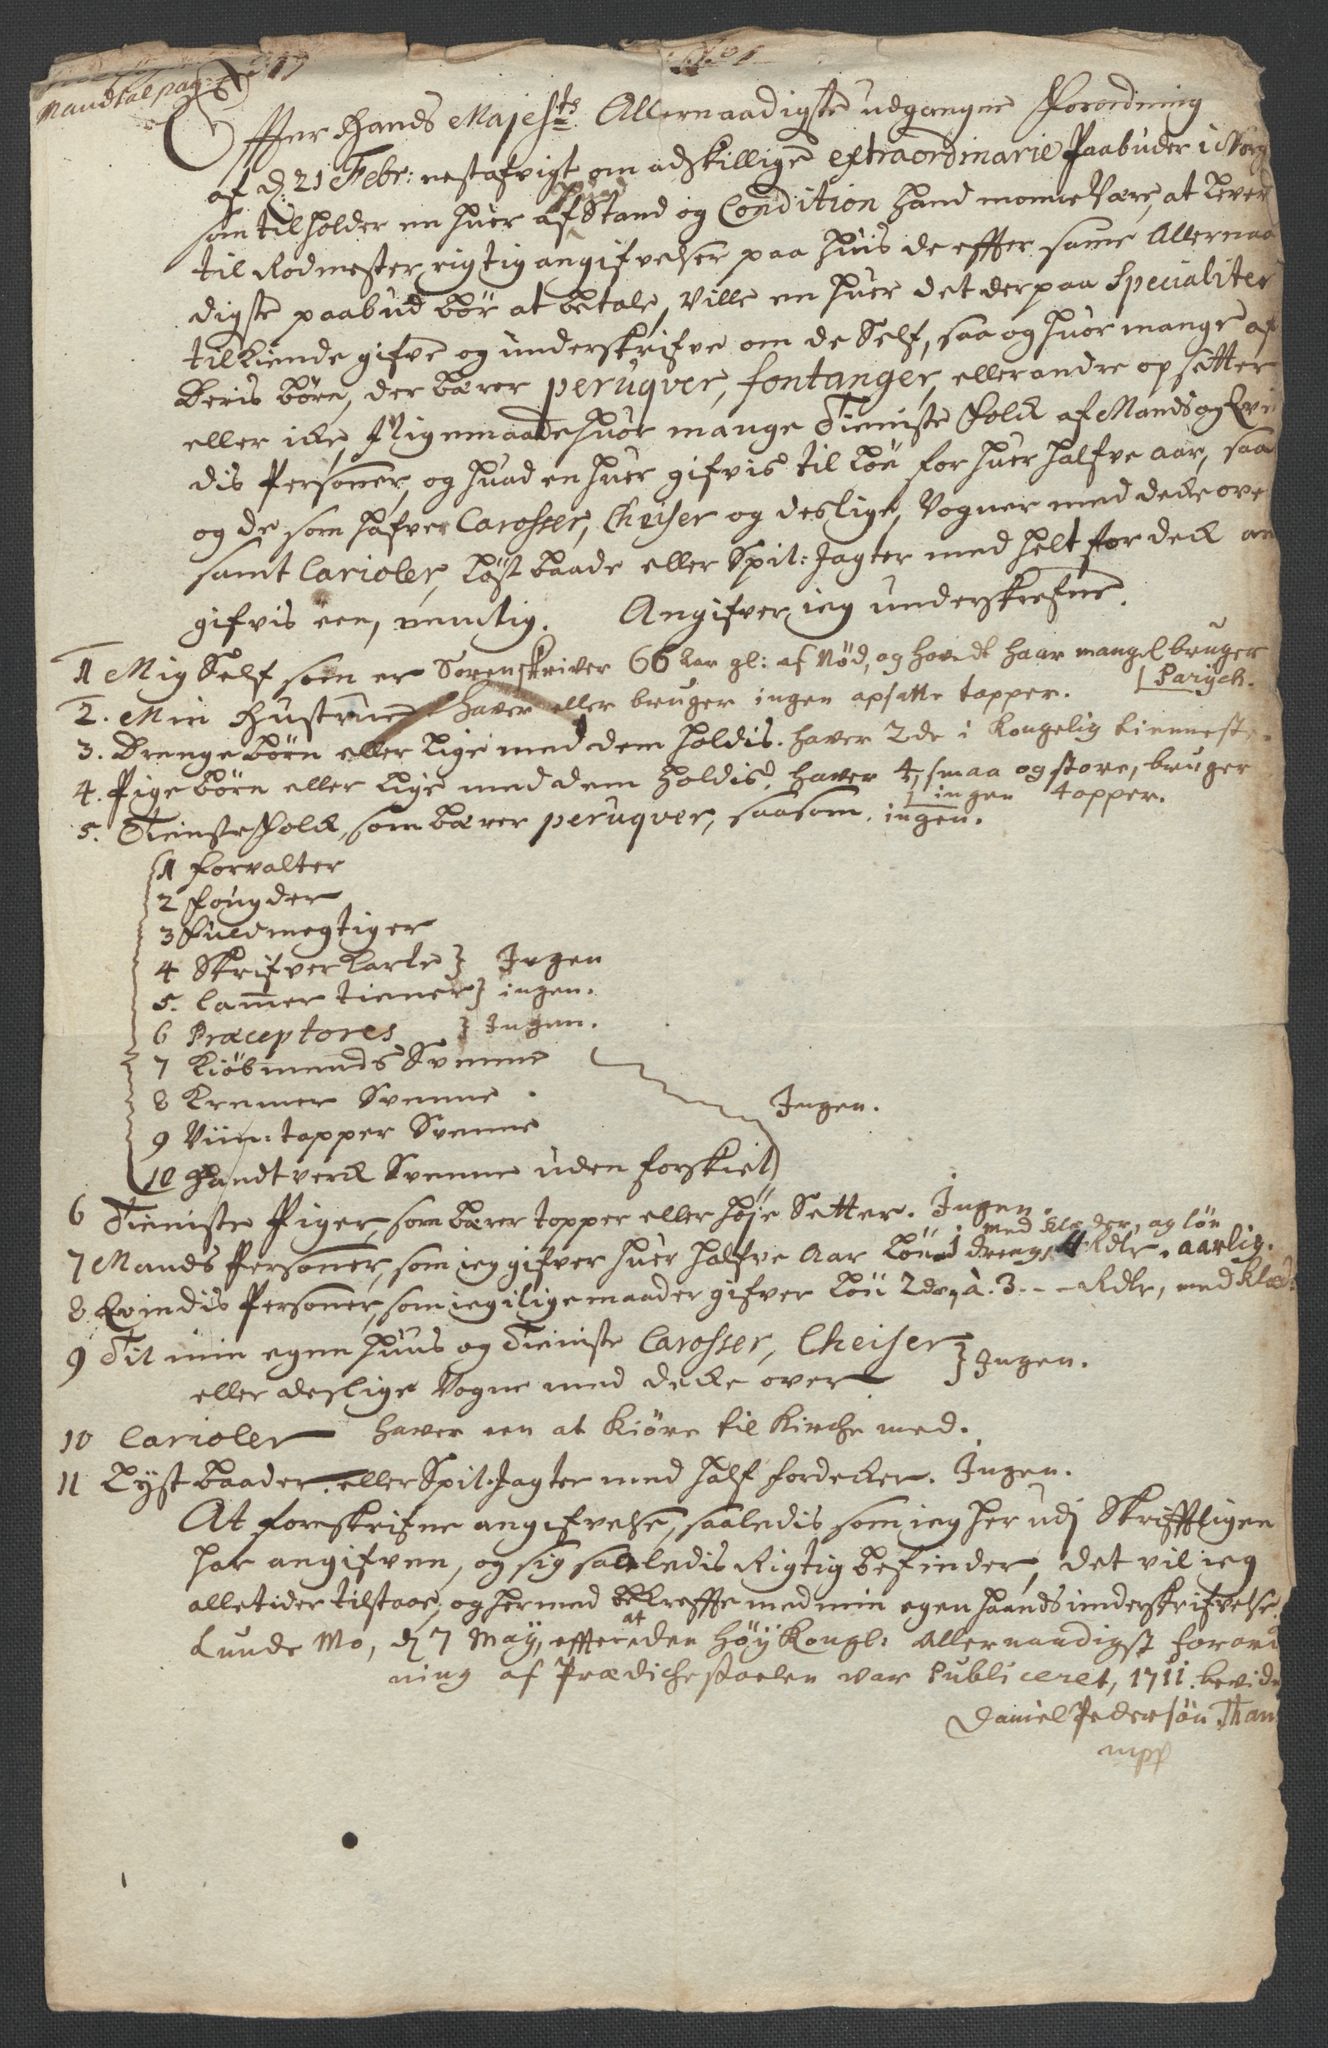 Mandtal pag:
Effter Hands Majests Allernaadigste udgangne Forordning
af d: 21 Febr: nestafvigt om adskillige extraordinarie Paabuder i Norg
som tilholder en huer af hvad Stand og Condition hand monne Være, at lever
til Rodmester rigtig angifvelser paa huis de effter samme Allernaa
digste paabud bør at betale, Ville en huer det derpaa Specialiter
tilkiende gifve og underskrifve om de Self, saa og huor mange af
deris børn, der bærer peruqver, fontanger, eller andre opsetter
eller icke, Ligemaade huor mange Tieniste Folck af Mands og Qvin
dis Personer, og huad en huer gifvis til Løn for huer halfve Aar, saa
og de som hafver Carosser, Cheiser og deslige, Vogner med decke over
samt Carioler, Løst baade eller Spil: Jagter med helt for deck an
gifvis een, nemlig. Angifver ieg underskrefne.
1 Mig Self som er Sorenskriver 66 aar gl: af Nød, og hovedt haar mangel bruger
Parych.
2. Min Hustrue haver eller bruger ingen opsatte topper.
3. Drenge børn eller lige med dem holdis. haver 2de i Kongelig tienneste.
4. Pige børn eller lige med dem holdis, haver 4, smaa og store, bruger
ingen topper.
5. Tieniste Folck, som bærer peruqver, saasom. ingen.
1 Forvalter
2 Fougder
3 Fuldmegtiger
4 Skrifver Karle } Ingen
5. Cammer tiener } ingen.
6 Præceptores } Ingen.
7 Kiøbmends Svenne
8 Kremer Svenne
9 Viin: tapper Svenne
Ingen.
10 Handtverck Svenne uden forskiel
6 Tieniste Piger, som bærer topper eller høje Setter. Ingen.
med klæder, og løn
7 Mands Personer, som ieg gifver huer halfve Aar Løn 1 dreng, 4 Rdlr. aarlig.
8 Qvindis Personer, som ieg i lige maader gifver Løn 2de, à. 3 -- Rdlr, med klæd:
9 Til min egen huus og Tieniste Carosser, Cheiser
eller deslige Vogne med decke over } Ingen.
10 Carioler haver een at kiøre til Kirche med.
11 Lyst baader, eller Spil: Jagter med half fordecker. Ingen.
At foreskrifne angifvelse, saaledis som ieg her udj Skrifftligen
har angifven, og sig saaledis Rigtig befinder, det vil ieg
alletider tilstaae, og hermed bekreffte med min egen haands underskrifvelse.
Lunde Mo, d 7 May, effter at den Høy Kongl: Allernaadigst forord
ning af Prædichestoelen var Publiceret, 1711. bevidn
Daniel Pedersøn Than
mpp